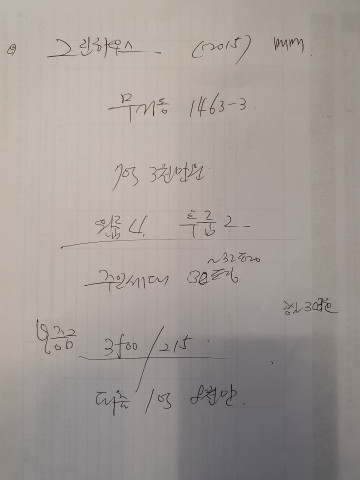 그린하우스 (2015)
무거동 1463-3
7억 3천만원
원룸 4. 투룸 2
~32평
주인세대 30평
공실 300만원
보증금 3500/215
대출 1억 8천만.